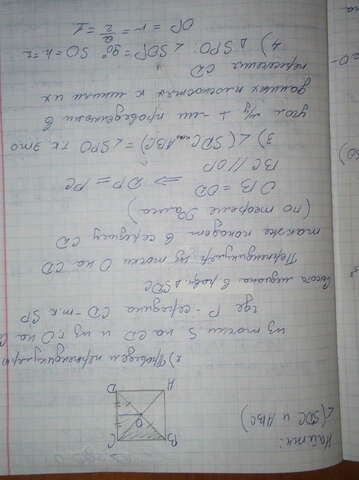 Найти:
∠(SDC и ABC)
A
B
C
D
O
2) Проведем перпендикуляры
из точки S на CD и из т.O на C
где P - середина CD - т.к SP
высота медиана в равн △SDC
Перпендикуляр из точки O на CD
также попадет в середину CD
(по теореме Фалеса)
OB = OD ⇒ DP = PC
BC // OP
3) ∠(SDC и ABC) = ∠SPO т.к это
угол м/у ⊥-ми проведенными в
данных плоскостях к линии их
пересечения CD
4) △SPO ∠SOP = 90° SO = h = 2
OP = r = a/2 = 1